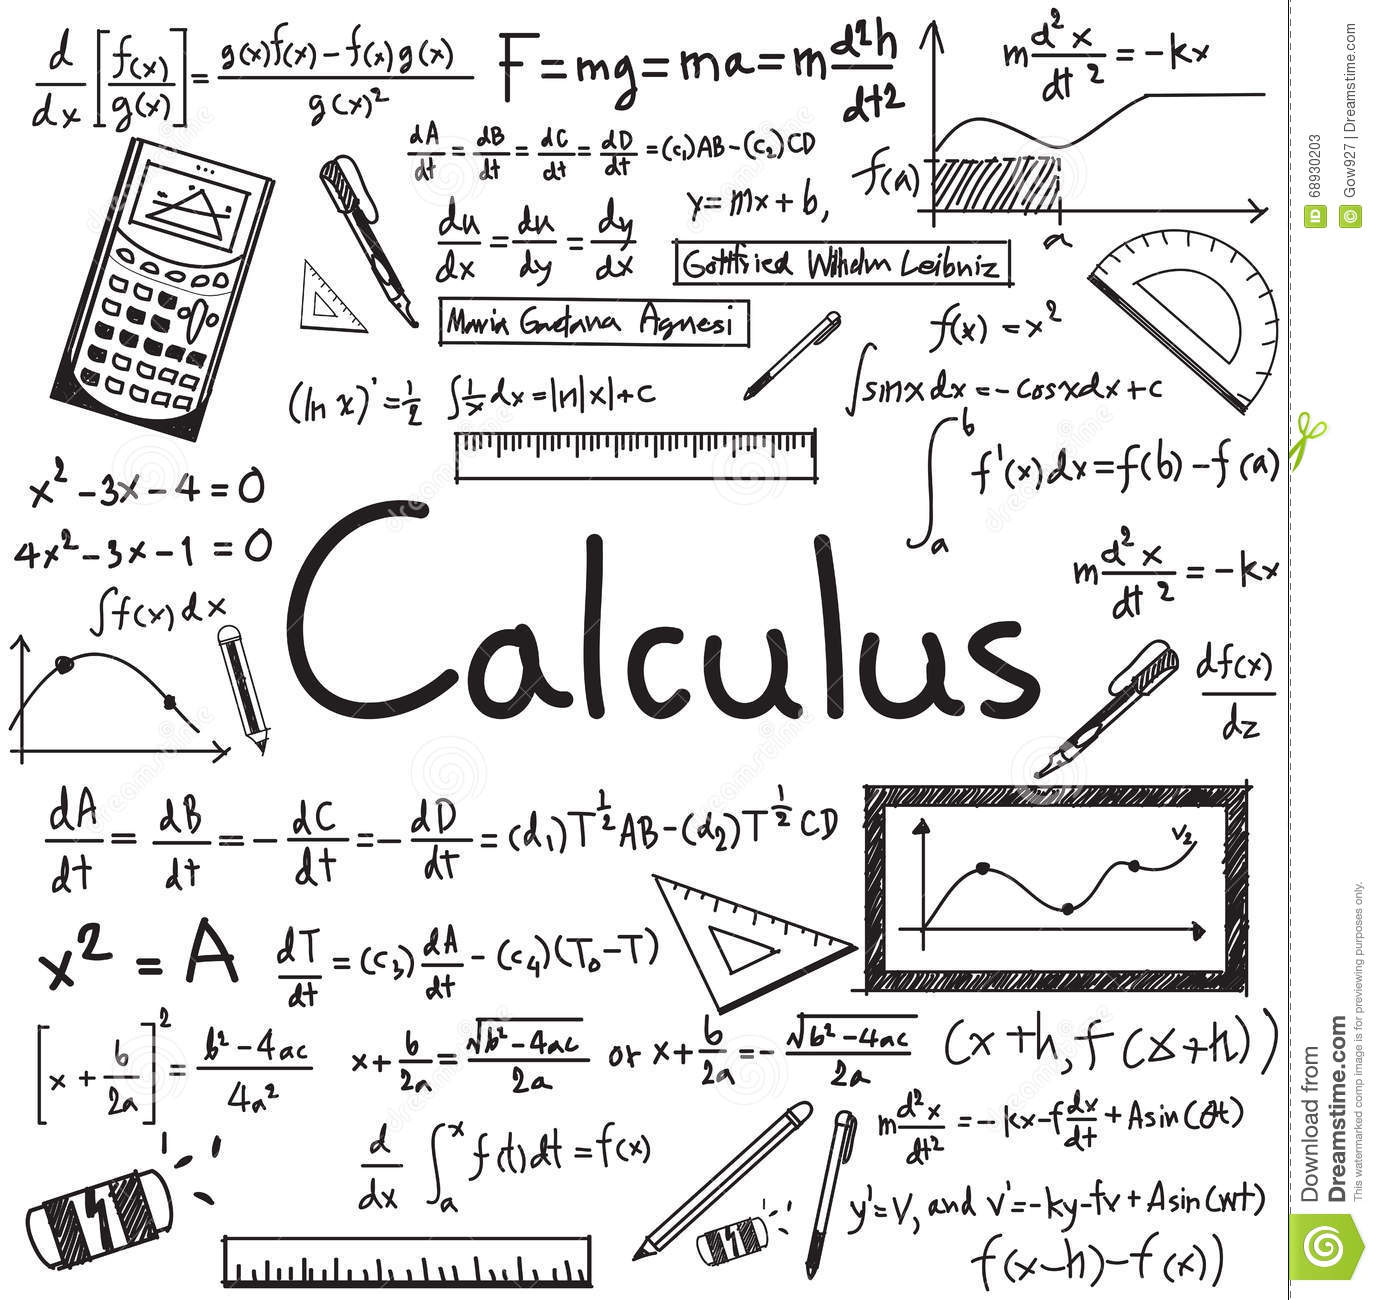 d/dx [f(x)/g(x)] = g(x)f(x) - f(x)g(x) / g(x)²
F = mg = ma = m d²h/dt2
m d²x/dt² = -kx
dA/dt = dB/dt = dC/dt = dD/dt = (c₁)AB-(c₂)CD
f(a)
a
y = mx + b,
du/dx = du/dy = dy/dx
Gottfried Wilhelm Leibniz
Maria Gaetana Agnesi
f(x) = x²
(ln x)' = 1/2
∫ 1/x dx = ln|x| + C
∫ sinx dx = - cosxdx + C
∫ₐᵇ f'(x)dx = f(b) - f(a)
x² - 3x - 4 = 0
4x² - 3x - 1 = 0
∫f(x)dx
Calculus
m d²x/dt² = -kx
df(x)/dz
dA/dt = dB/dt = - dC/dt = - dD/dt = (d₁)T^½AB-(d₂)T^½CD
V₂
x² = A
dT/dt = (c₃) dA/dt - (c₄)(T₀-T)
[x + b/2a]² = b² - 4ac / 4a²
x + b/2a = √b² - 4ac / 2a or x + b/2a = - √b² - 4ac / 2a
(x + h, f(x + h))
m d²x/dt² = - kx - f dx/dt + Asin(ωt)
d/dx ∫ₐˣ f(t)dt = f(x)
y' = v, and v' = -ky-fv + Asin(wt)
f(x-h)-f(x))
ID 68930203
© Gow927 | Dreamstime.com
Download from
Dreamstime.com
This watermarked comp image is for previewing purposes only.
dreamstime